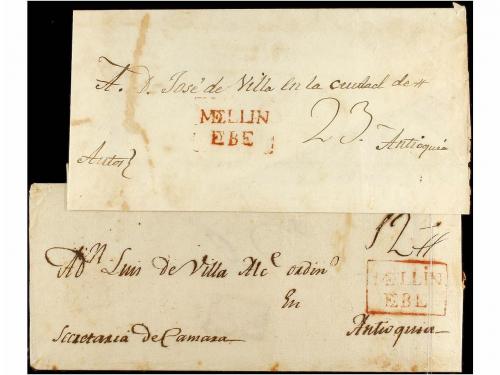 A. D. José de Villa en la ciudad de
MELLIN
EBE
23.
Antioquia
Autos
A Dn Luis de Villa Alce ordino
En
12
MELLIN
EBE
Secretaria de Camara
Antioquia